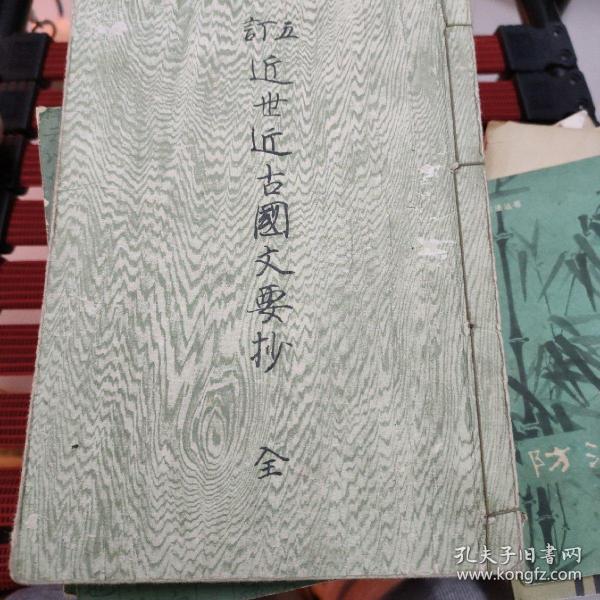 五訂
近世近古國文要抄
全
防
孔夫子旧书网
www.kongfz.com